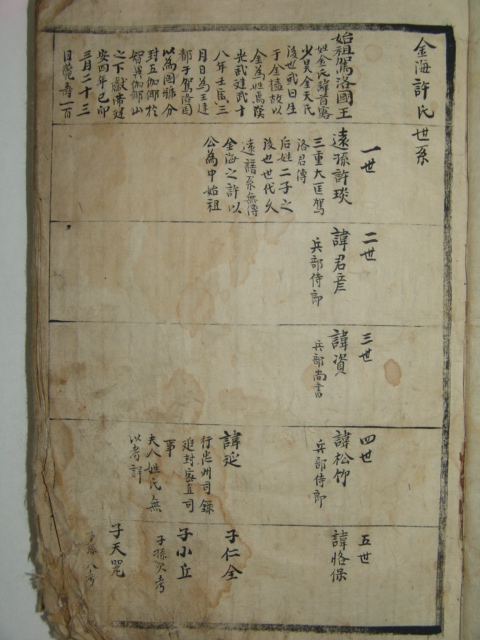 金海許氏世系
始祖駕洛國王
姓金氏諱首露
少昊金天氏
後世或曰生
于金榼故以
金為姓焉漢
光武建武十
八年壬寅三
月日為王建
都于駕洛因
以為國號分
封五伽倻於
智異伽倻山
之下獻帝建
安四年己卯
三月二十三
日薨壽一百
一世
遠孫許琰
三重大匡駕
洛君傳
后姓二子之
後也世代久
遠譜系無傳
金海之許以
公為中始祖
二世
諱君彦
兵部侍郎
三世
諱資
兵部尚書
四世
諱松卿
兵部侍郎
諱延
行忠州司錄
追封密直司
事
夫人姓氏無
以考詳
五世
諱恪保
子仁全
子小丘
子孫欠考
子天